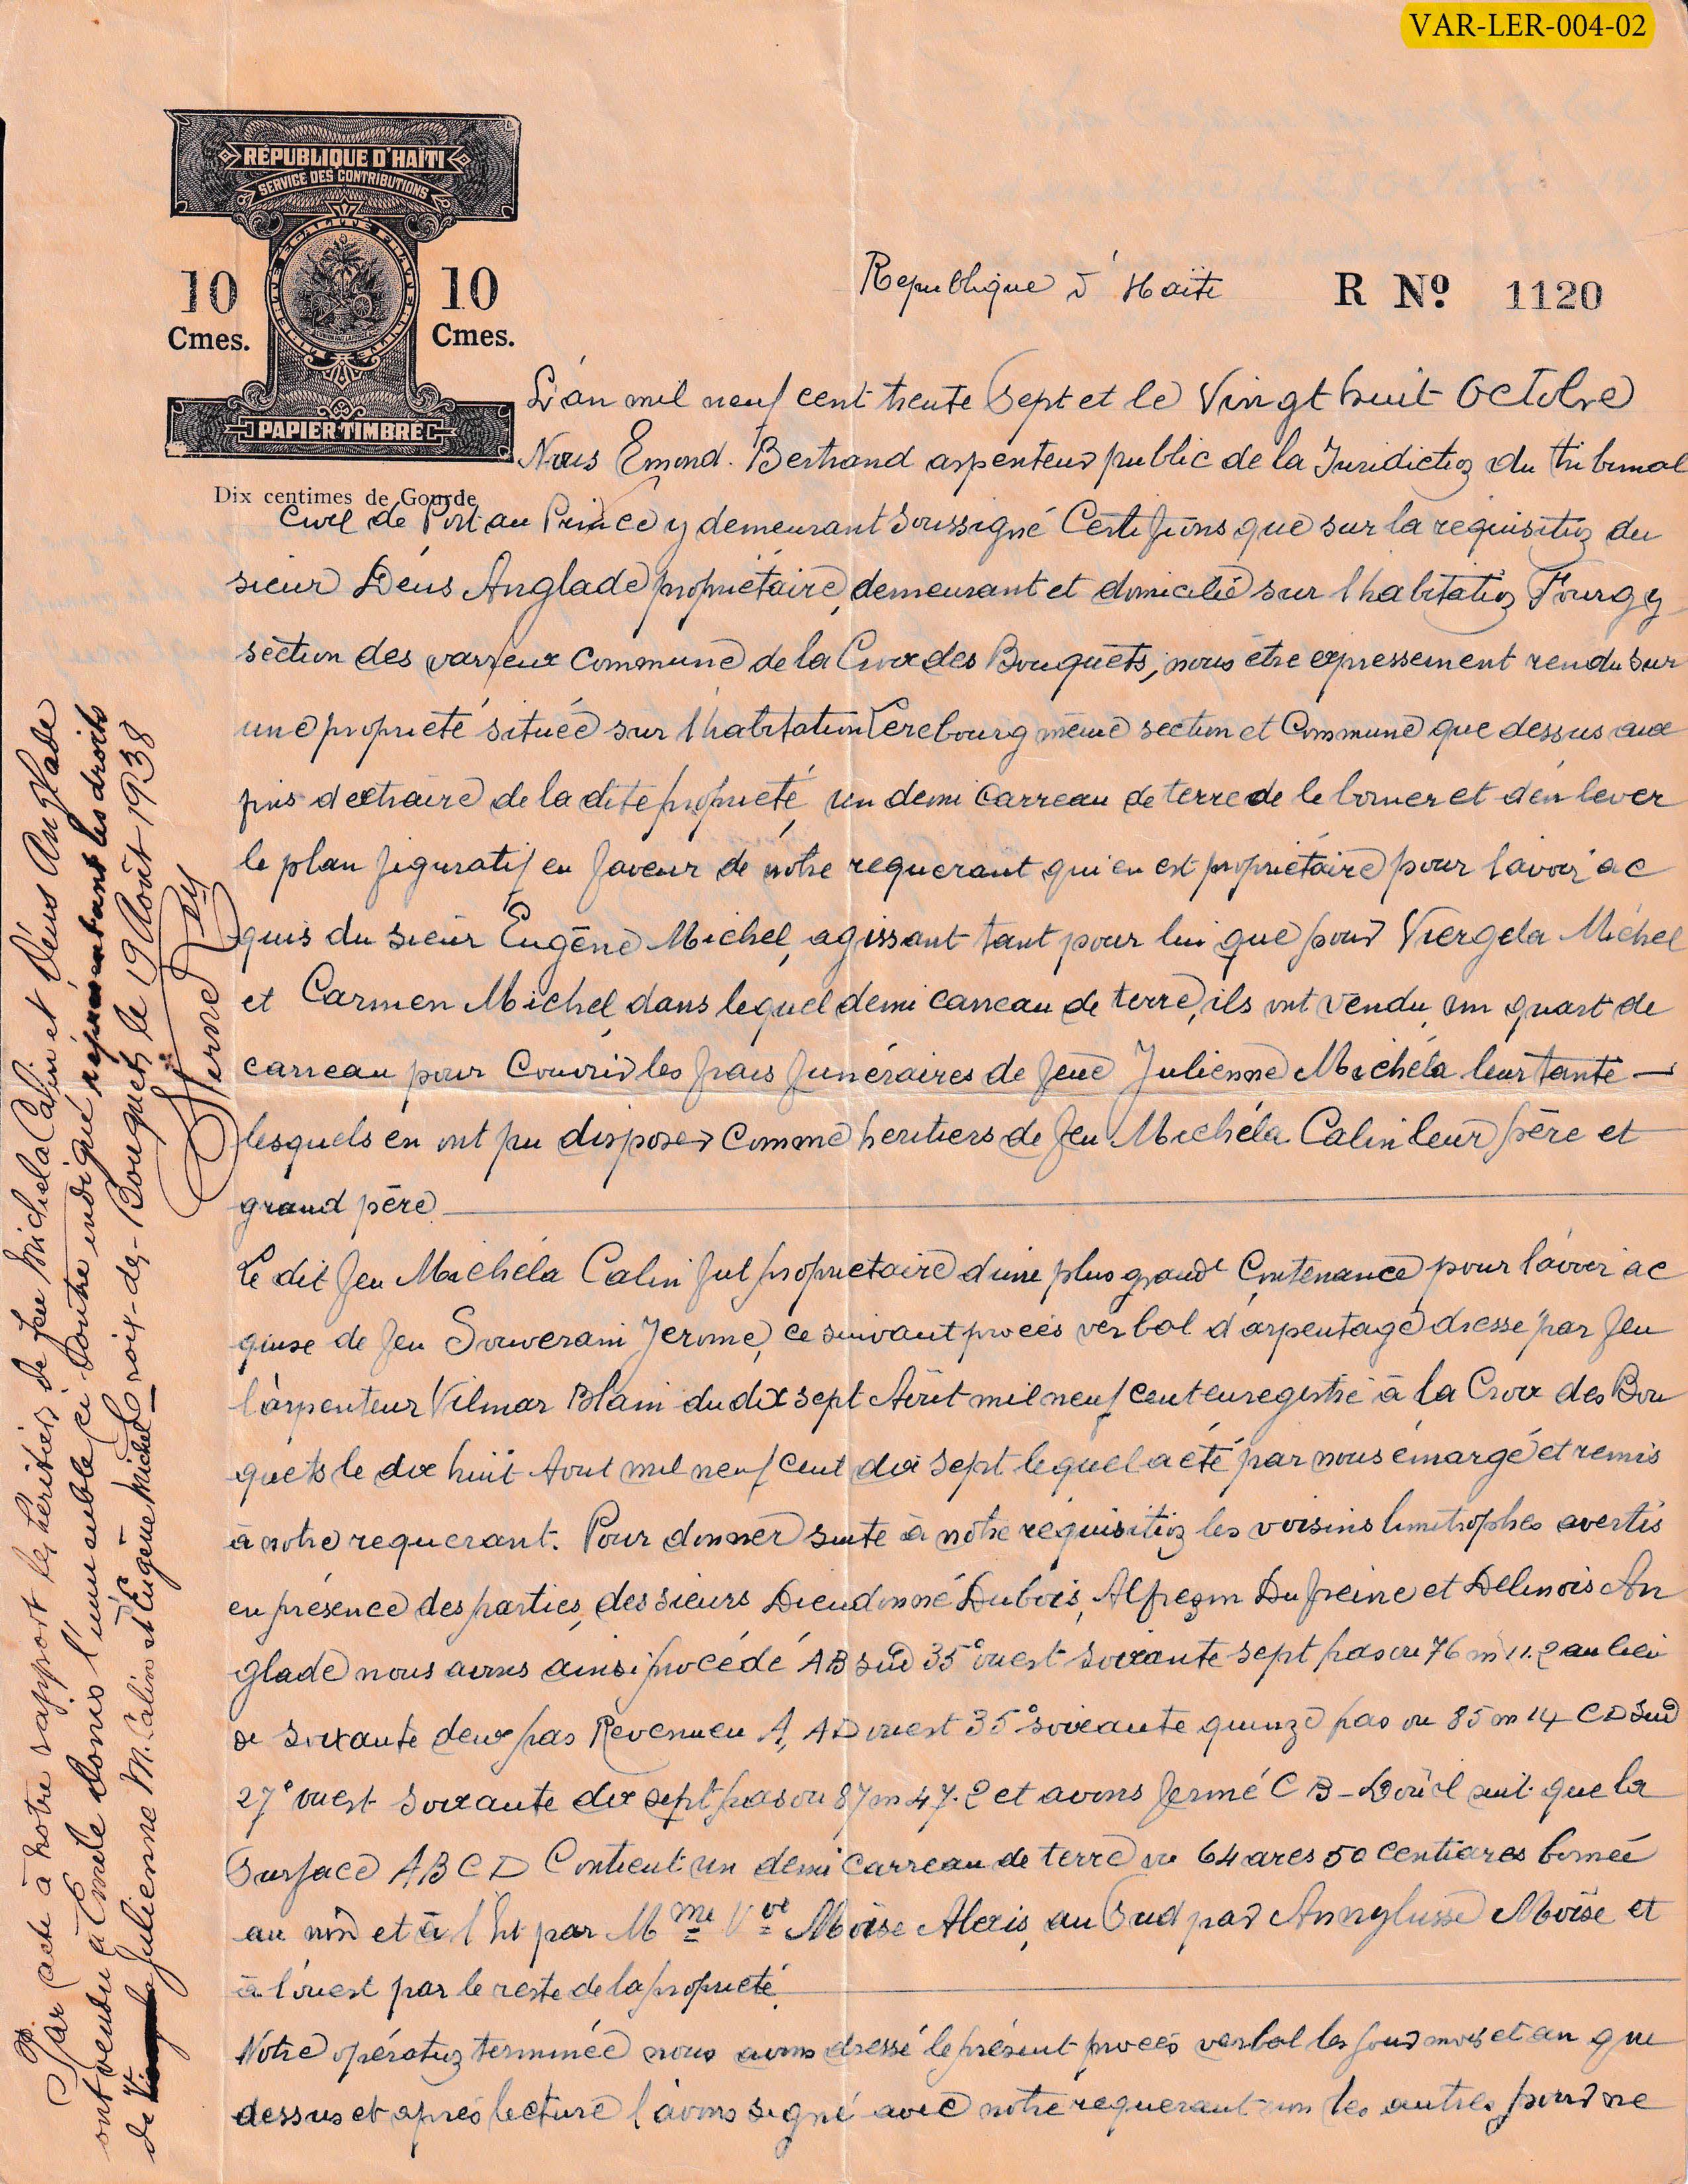 VAR-LER-004-02
RÉPUBLIQUE D'HAÏTI
SERVICE DES CONTRIBUTIONS
LIBERTÉ ÉGALITÉ FRATERNITÉ
10 10
Cmes. Cmes.
PAPIER TIMBRÉ
Dix centimes de Gourde
Republique d'Haïti
R Nº 1120
L'an mil neuf cent trente sept et le Vingt huit Octobre
Nous Emond. Bertrand arpenteur public de la Juridiction du tribunal
Civil de Port au Prince y demeurant soussigné Certifions que sur la requisition du
sieur Déus Anglade propriétaire, demeurant et domicilié sur l'habitation Fourgy
section des varreux Commune de la Croix des Bouquets, nous être expressement rendu sur
une propriété située sur l'habitation Lerebourg même section et Commune que dessus aux
fins d'extraire de la dite propriété un demi Carreau de terre de le borner et d'en lever
le plan figuratif en faveur de notre requerant qui en est propriétaire pour l'avoir ac
quis du sieur Eugène Michel, agissant tant pour lui que pour Viergela Michel
et Carmen Michel, dans lequel demi carreau de terre, ils ont vendu un quart de
carreau pour Couvrir les frais funéraires de feue Julienne Michéla leur tante
lesquels en ont pu disposer Comme heritiers de feu Michéla Calin leur père et
grand père
Le dit feu Michéla Calin fut propriétaire d'une plus grande Contenance pour l'avoir ac
quise de feu Souverain Jerome, ce suivant procès verbal d'arpentage dressé par feu
l'arpenteur Vilmar Blain du dix sept Aout mil neuf cent enregistré à la Croix des Bou
quets le dix huit Aout mil neuf cent dix sept lequel a été par nous émargé et remis
à notre requerant. Pour donner suite à notre réquisition les voisins limitrophes avertis
en présence des parties, des sieurs Dieudonné Dubois, Alfreson Dufreine et Delinois An
glade nous avons ainsi procédé AB sud 35° ouest soixante sept pas ou 76 m 11.2 au lieu
de soixante deux pas Revenu en A, AD ouest 35° soixante quinze pas ou 85 m 14 CD Sud
27° ouest soixante dix sept pas ou 87 m 47.2 et avons fermé C B - D'où il suit que la
Surface A B C D Contient un demi Carreau de terre ou 64 ares 50 centiares bornée
au nord et à l'Est par Mme Vve Moïse Alexis, au Sud par Annylusse Moïse et
à l'ouest par le reste de la propriété
Notre opération terminée nous avons dressé le présent procès verbal les jour mois et an que
dessus et après lecture l'avons signé avec notre requerant non les autres pour ne
Par acte à notre rapport les héritiers de feu Michela Calin et Déus Anglade
ont vendu à Emile Clonis l'immeuble ci contre indiqué représentant les droits
de Julienne M. Calin et Eugène Michel Croix-des-Bouquets le 19 Août 1938